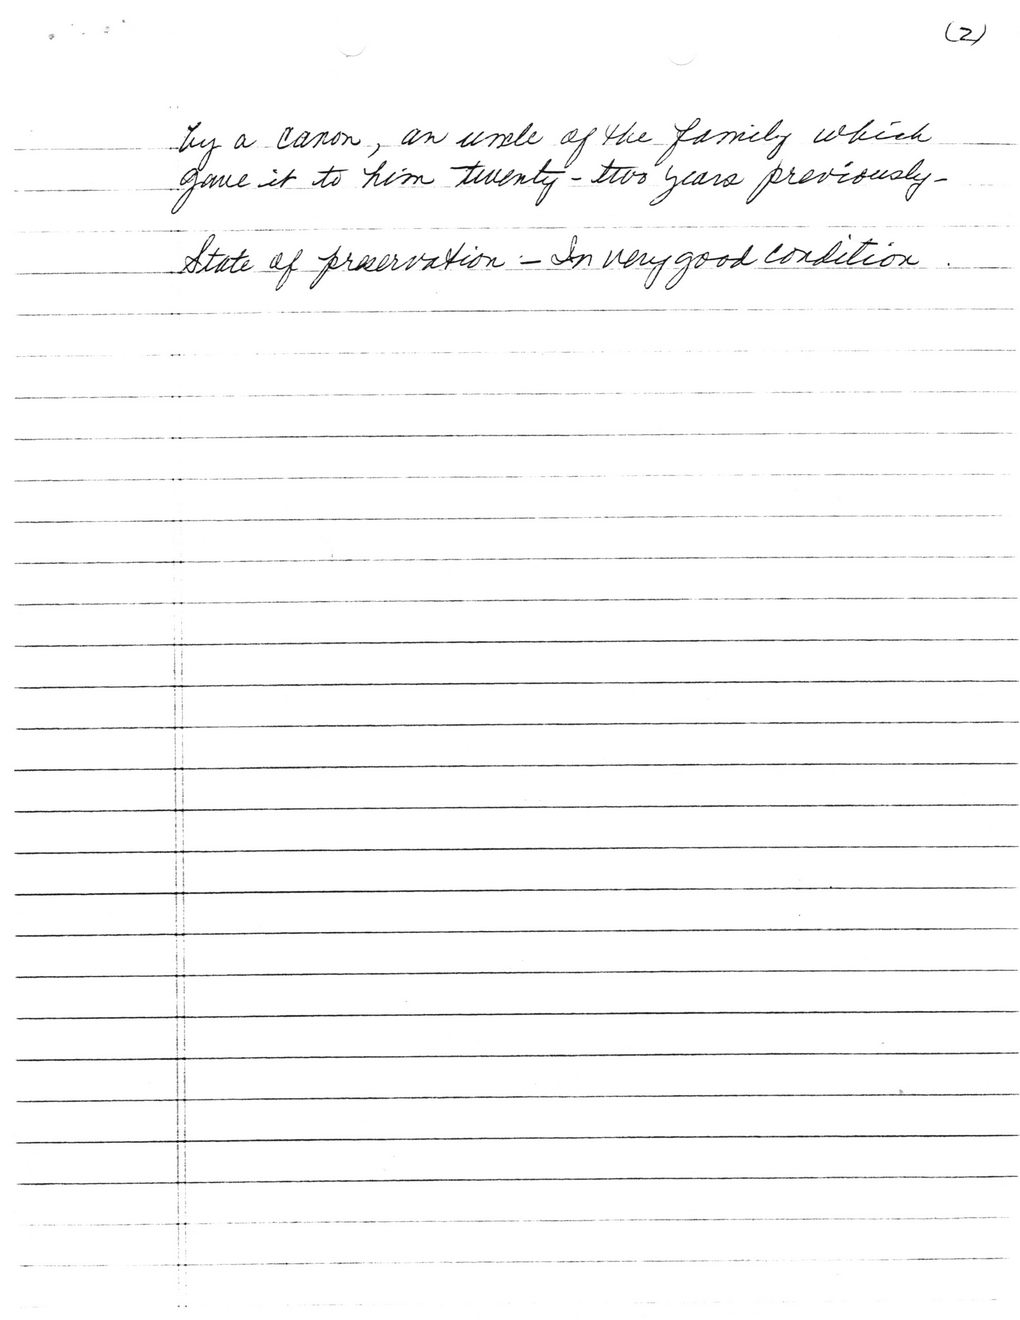 (2)
by a canon, an uncle of the family which
gave it to him twenty-two years previously-
State of preservation - In very good condition.